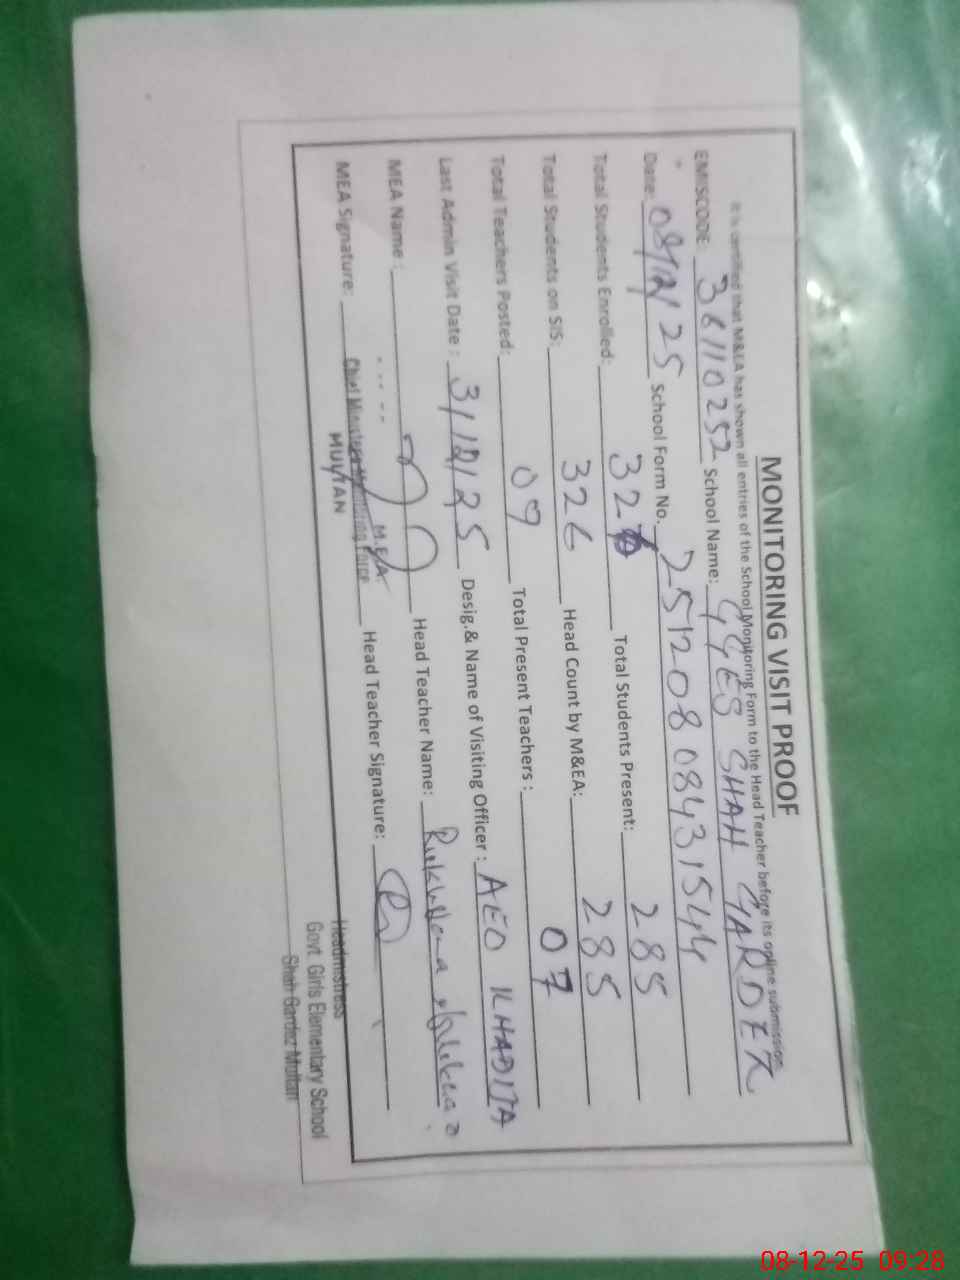 MONITORING VISIT PROOF
It is certified that M&EA has shown all entries of the School Monitoring Form to the Head Teacher before its online submission
EMISCODE: 36110252 School Name: GGES SHAH GARDEZ
Date: 08/12/25 School Form No. 25120808431544
Total Students Enrolled: 32 Total Students Present: 285
Total Students on SIS: 326 Head Count by M&EA: 285
Total Teachers Posted: 09 Total Present Teachers : 07
Last Admin Visit Date : 3/12/25 Desig.& Name of Visiting Officer : AEO KHADIJA
MEA Name : Head Teacher Name: Rukhsana
M.E.A
MEA Signature: Chief Ministers Monitoring Force Head Teacher Signature:
MULTAN
Headmistress
Govt. Girls Elementary School
Shah Gardez Multan
08-12-25 09:28